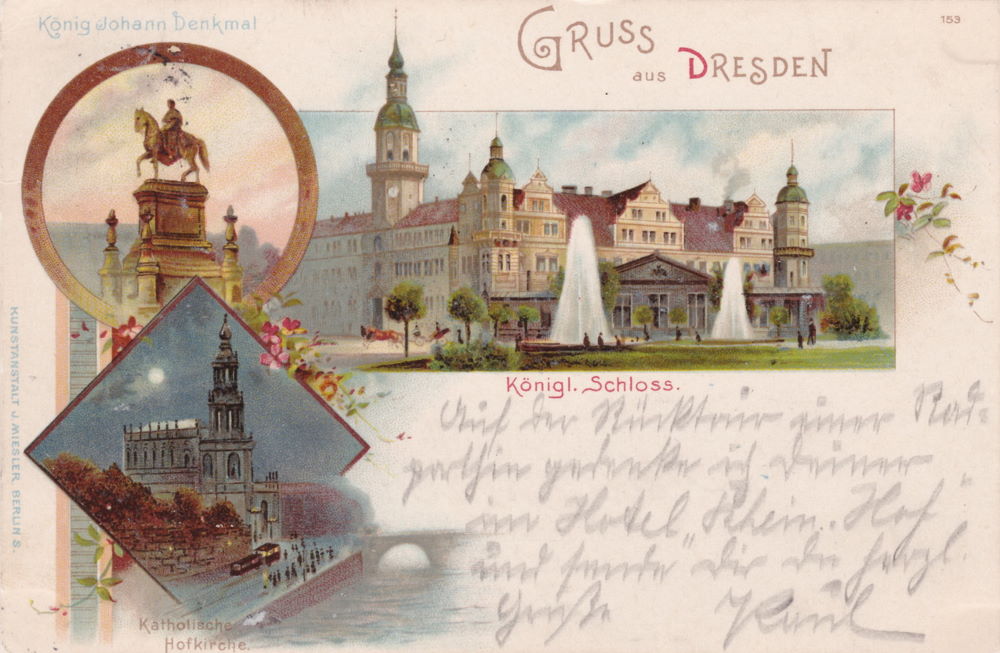 König Johann Denkmal
153
GRUSS
aus DRESDEN
Königl. Schloss.
KUNSTANSTALT J. MIESLER, BERLIN S.
Auf der Rücktour einer Rad-
parthie gedenke ich Deiner
im Hotel „Rhein. Hof"
und sende Dir die herzl.
Grüße Paul
Katholische
Hofkirche.